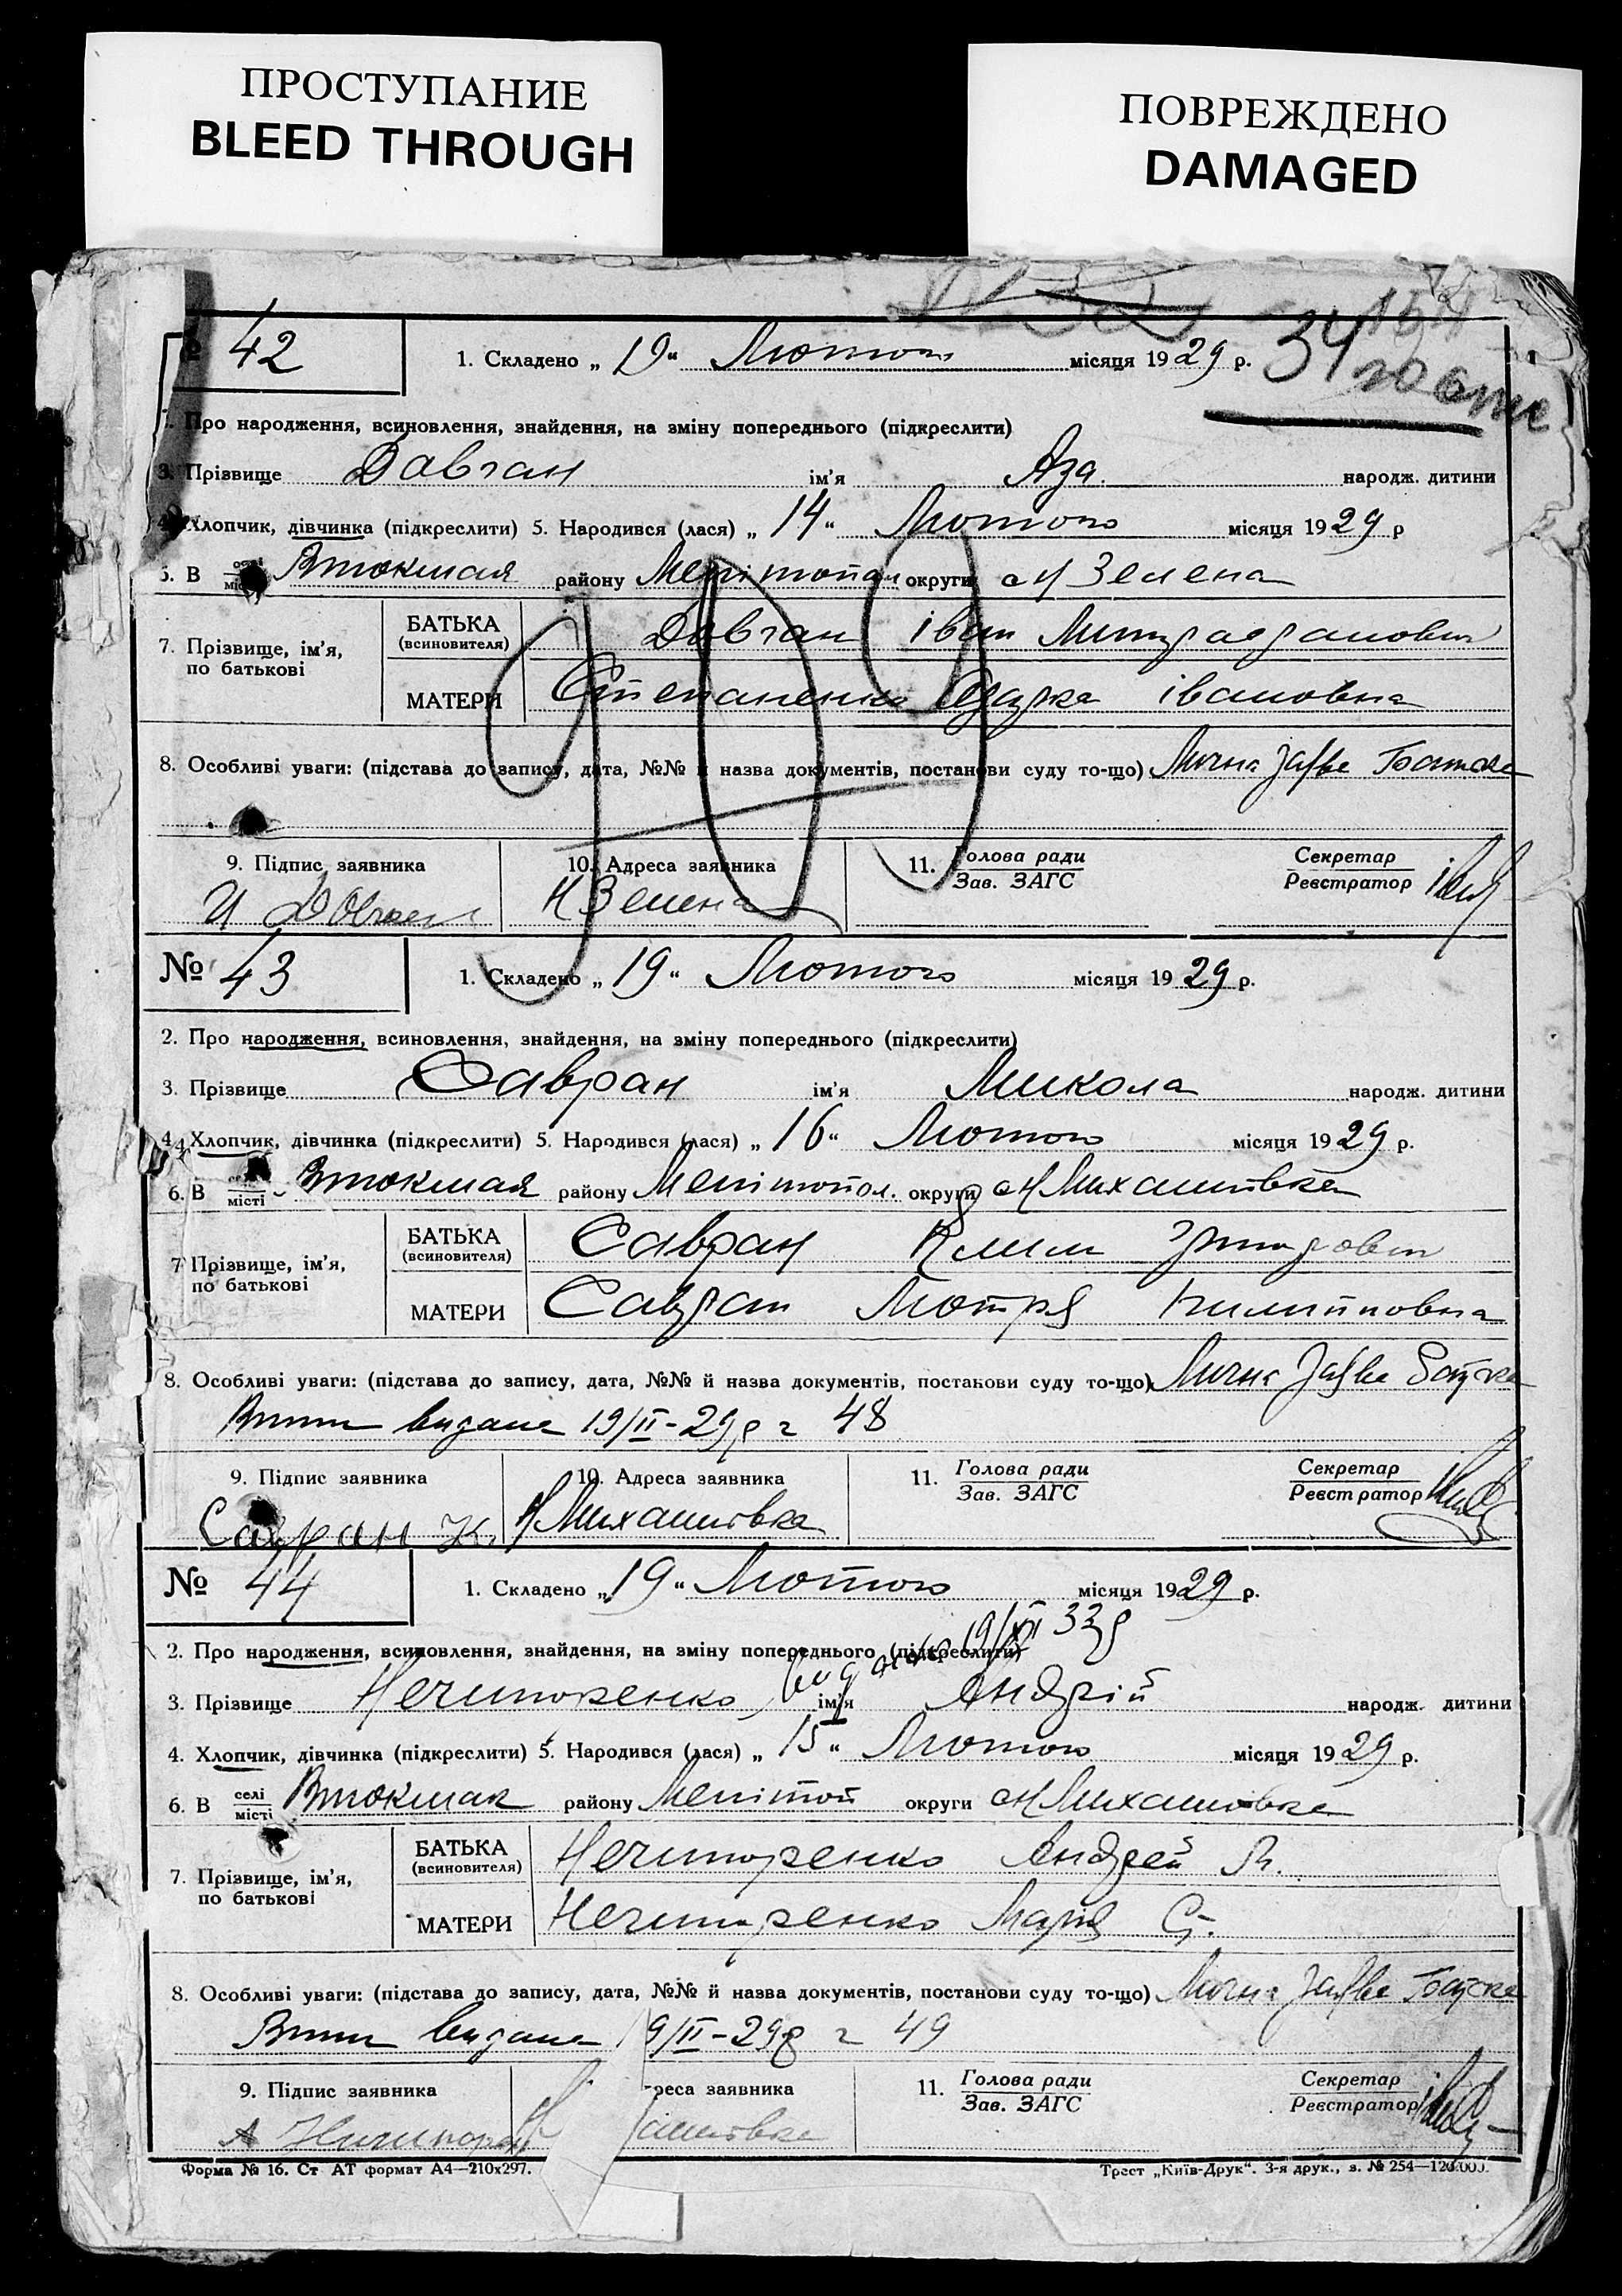 ПРОСТУПАНИЕ
BLEED THROUGH
ПОВРЕЖДЕНО
DAMAGED
42
1. Складено „ 19 “ Лютого місяця 1929 р.
Про народження, всиновлення, знайдення, на зміну попереднього (підкреслити)
3. Прізвище Довган ім'я Аза народж. дитини
Хлопчик, дівчинка (підкреслити) 5. Народився (лася) „ 14 “ Лютого місяця 1929 р
В Втокмая району Мелітопол округи с Н Зелена
7. Прізвище, ім'я, по батькові
БАТЬКА (всиновителя) Довган Іван
МАТЕРИ Степаненко Одарка Івановна
8. Особливі уваги: (підстава до запису, дата, №№ й назва документів, постанови суду то-що) Лична заява Батька
9. Підпис заявника 10. Адреса заявника 11. Голова ради Зав. ЗАГС Секретар Реєстратор
И Довган Н Зелена
№ 43
1. Складено „ 19 “ Лютого місяця 1929 р.
2. Про народження, всиновлення, знайдення, на зміну попереднього (підкреслити)
3. Прізвище Савран ім'я Микола народж. дитини
4. Хлопчик, дівчинка (підкреслити) 5. Народився (лася) „ 16 “ Лютого місяця 1929 р.
6. В місті Втокмая району Мелітопол. округи с Н Михайлівка
7 Прізвище, ім'я, по батькові
БАТЬКА (всиновителя) Савран Клим
МАТЕРИ Савран Мотря Пилиповна
8. Особливі уваги: (підстава до запису, дата, №№ й назва документів, постанови суду то-що) Лична заява Батька
Витяг видано 19/II-29р 48
9. Підпис заявника 10. Адреса заявника 11. Голова ради Зав. ЗАГС Секретар Реєстратор
Савран К. Н Михайлівка
№ 44
1. Складено „ 19 “ Лютого місяця 1929 р.
2. Про народження, всиновлення, знайдення, на зміну попереднього (підкреслити)
3. Прізвище Нечипоренко ім'я Андрій народж. дитини
4. Хлопчик, дівчинка (підкреслити) 5. Народився (лася) „ 15 “ Лютого місяця 1929 р.
6. В селі місті Втокмак району Мелітоп округи с Н Михайловка
7. Прізвище, ім'я, по батькові
БАТЬКА (всиновителя) Нечипоренко Андрей
МАТЕРИ Нечипоренко Марія С.
8. Особливі уваги: (підстава до запису, дата, №№ й назва документів, постанови суду то-що) Лична заява Батька
Витяг видано 19/II-29р 49
9. Підпис заявника реса заявника 11. Голова ради Зав. ЗАГС Секретар Реєстратор
Форма № 16. Ст АТ формат А4—210х297.
Трест „Київ-Друк“. 3-я друк., з. № 254—120.000.